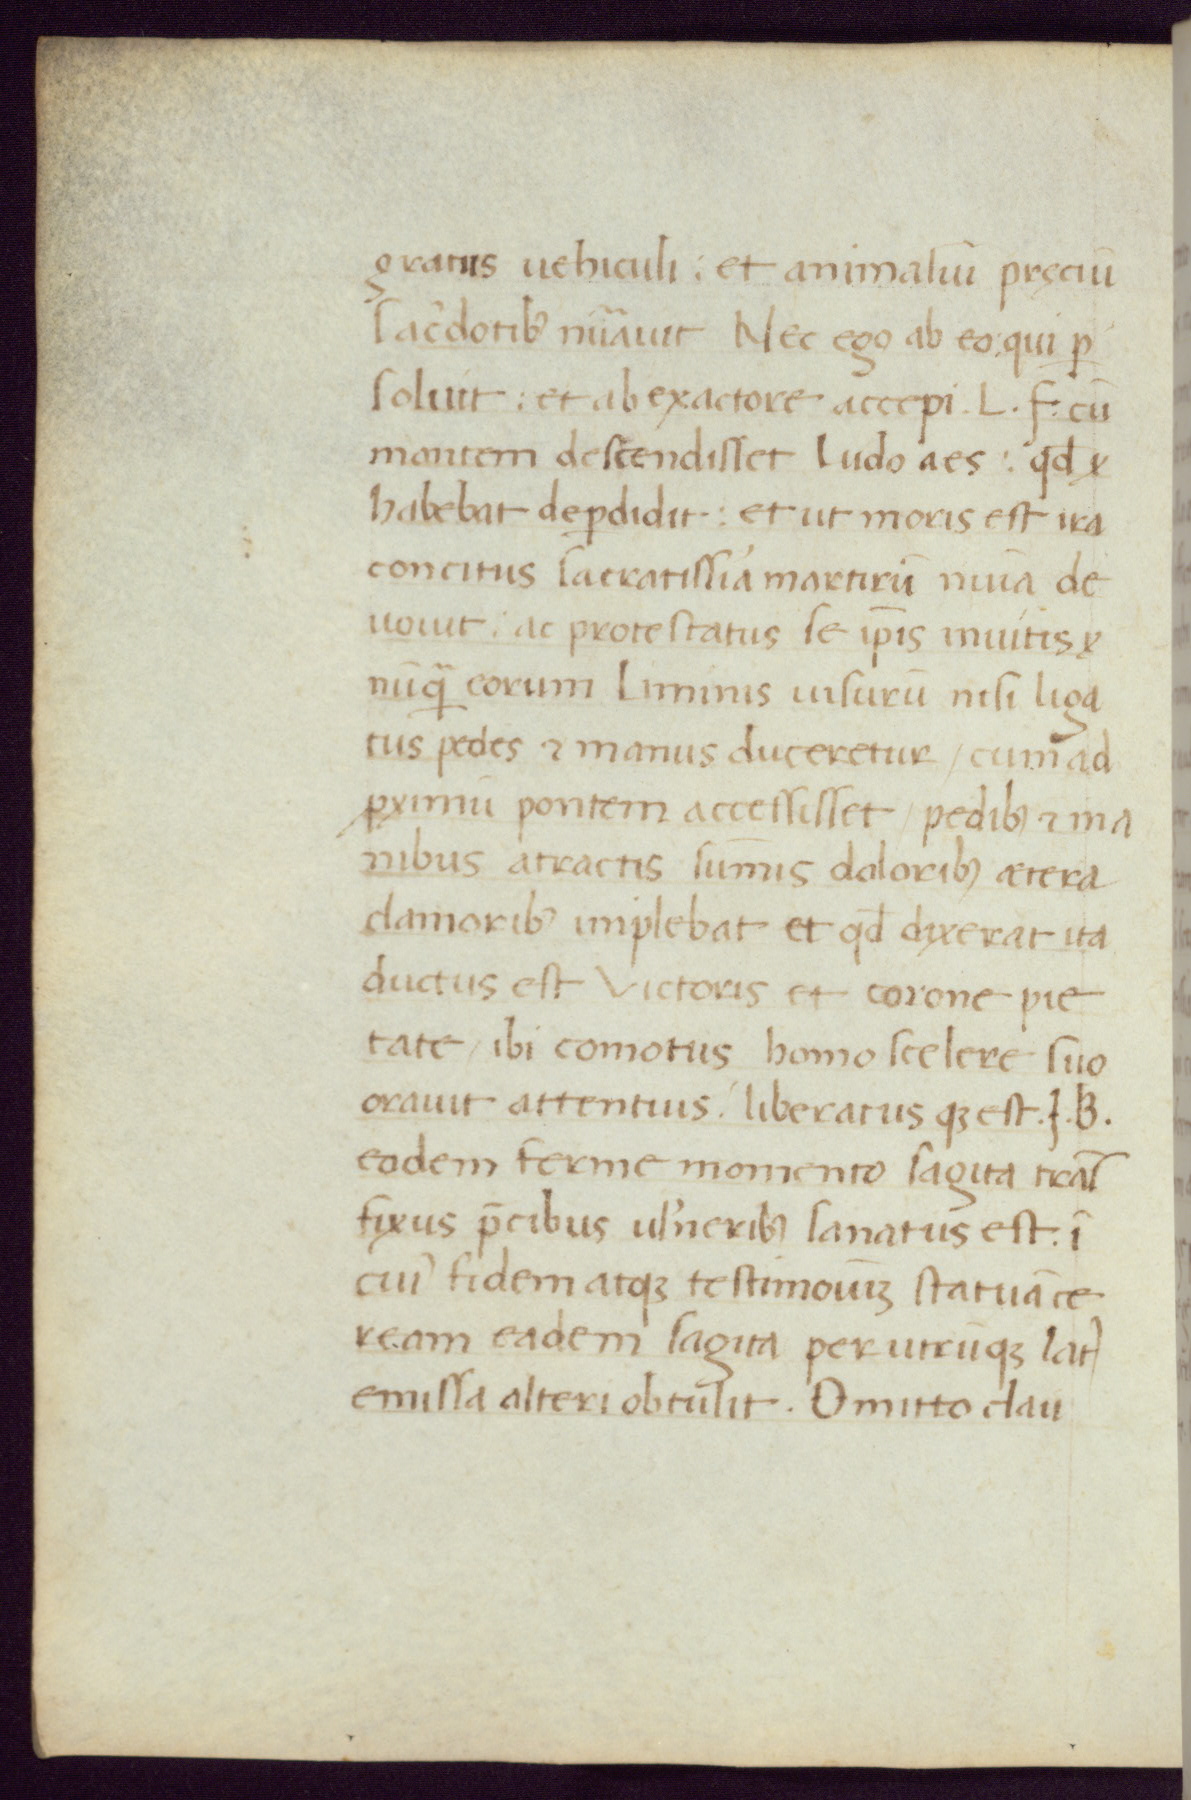 gratus uehiculi : et animaliū pręciū
sac̄dotib⁹ nūāuit Nec ego ab eo : qui ꝑ
soluit : et ab exactore accepi . L . F . cū
montem descendisset ludo aes : qd̄ x
habebat deꝑdidit : et ut moris est ira
concitus sacratissīa martirū nūīa de
uouit : ac protestatus se ip̄is inuitis x
nūq̄ eorum liminis uisurū nisi liga
tus pedes ⁊ manus duceretur / cum ad
ꝓximū pontem accessisset / pedib⁹ ⁊ ma
nibus atractis sum̄is doloribꝫ ætera
clamorib⁹ implebat et qd̄ dixerat ita
ductus est Victoris et corone pie
tate / ibi comotus homo scelere suo
orauit attentius : liberatus qꝫ est . J . B .
eodem ferme momento sagita tras
fixus p̄cibus ul'neribꝫ sanatus est . ī
cui' fidem atqꝫ testimoūiꝫ statuā ce
ream eadem sagita per utrūqꝫ lat⁹
emissa alteri obtulit . Omitto clau